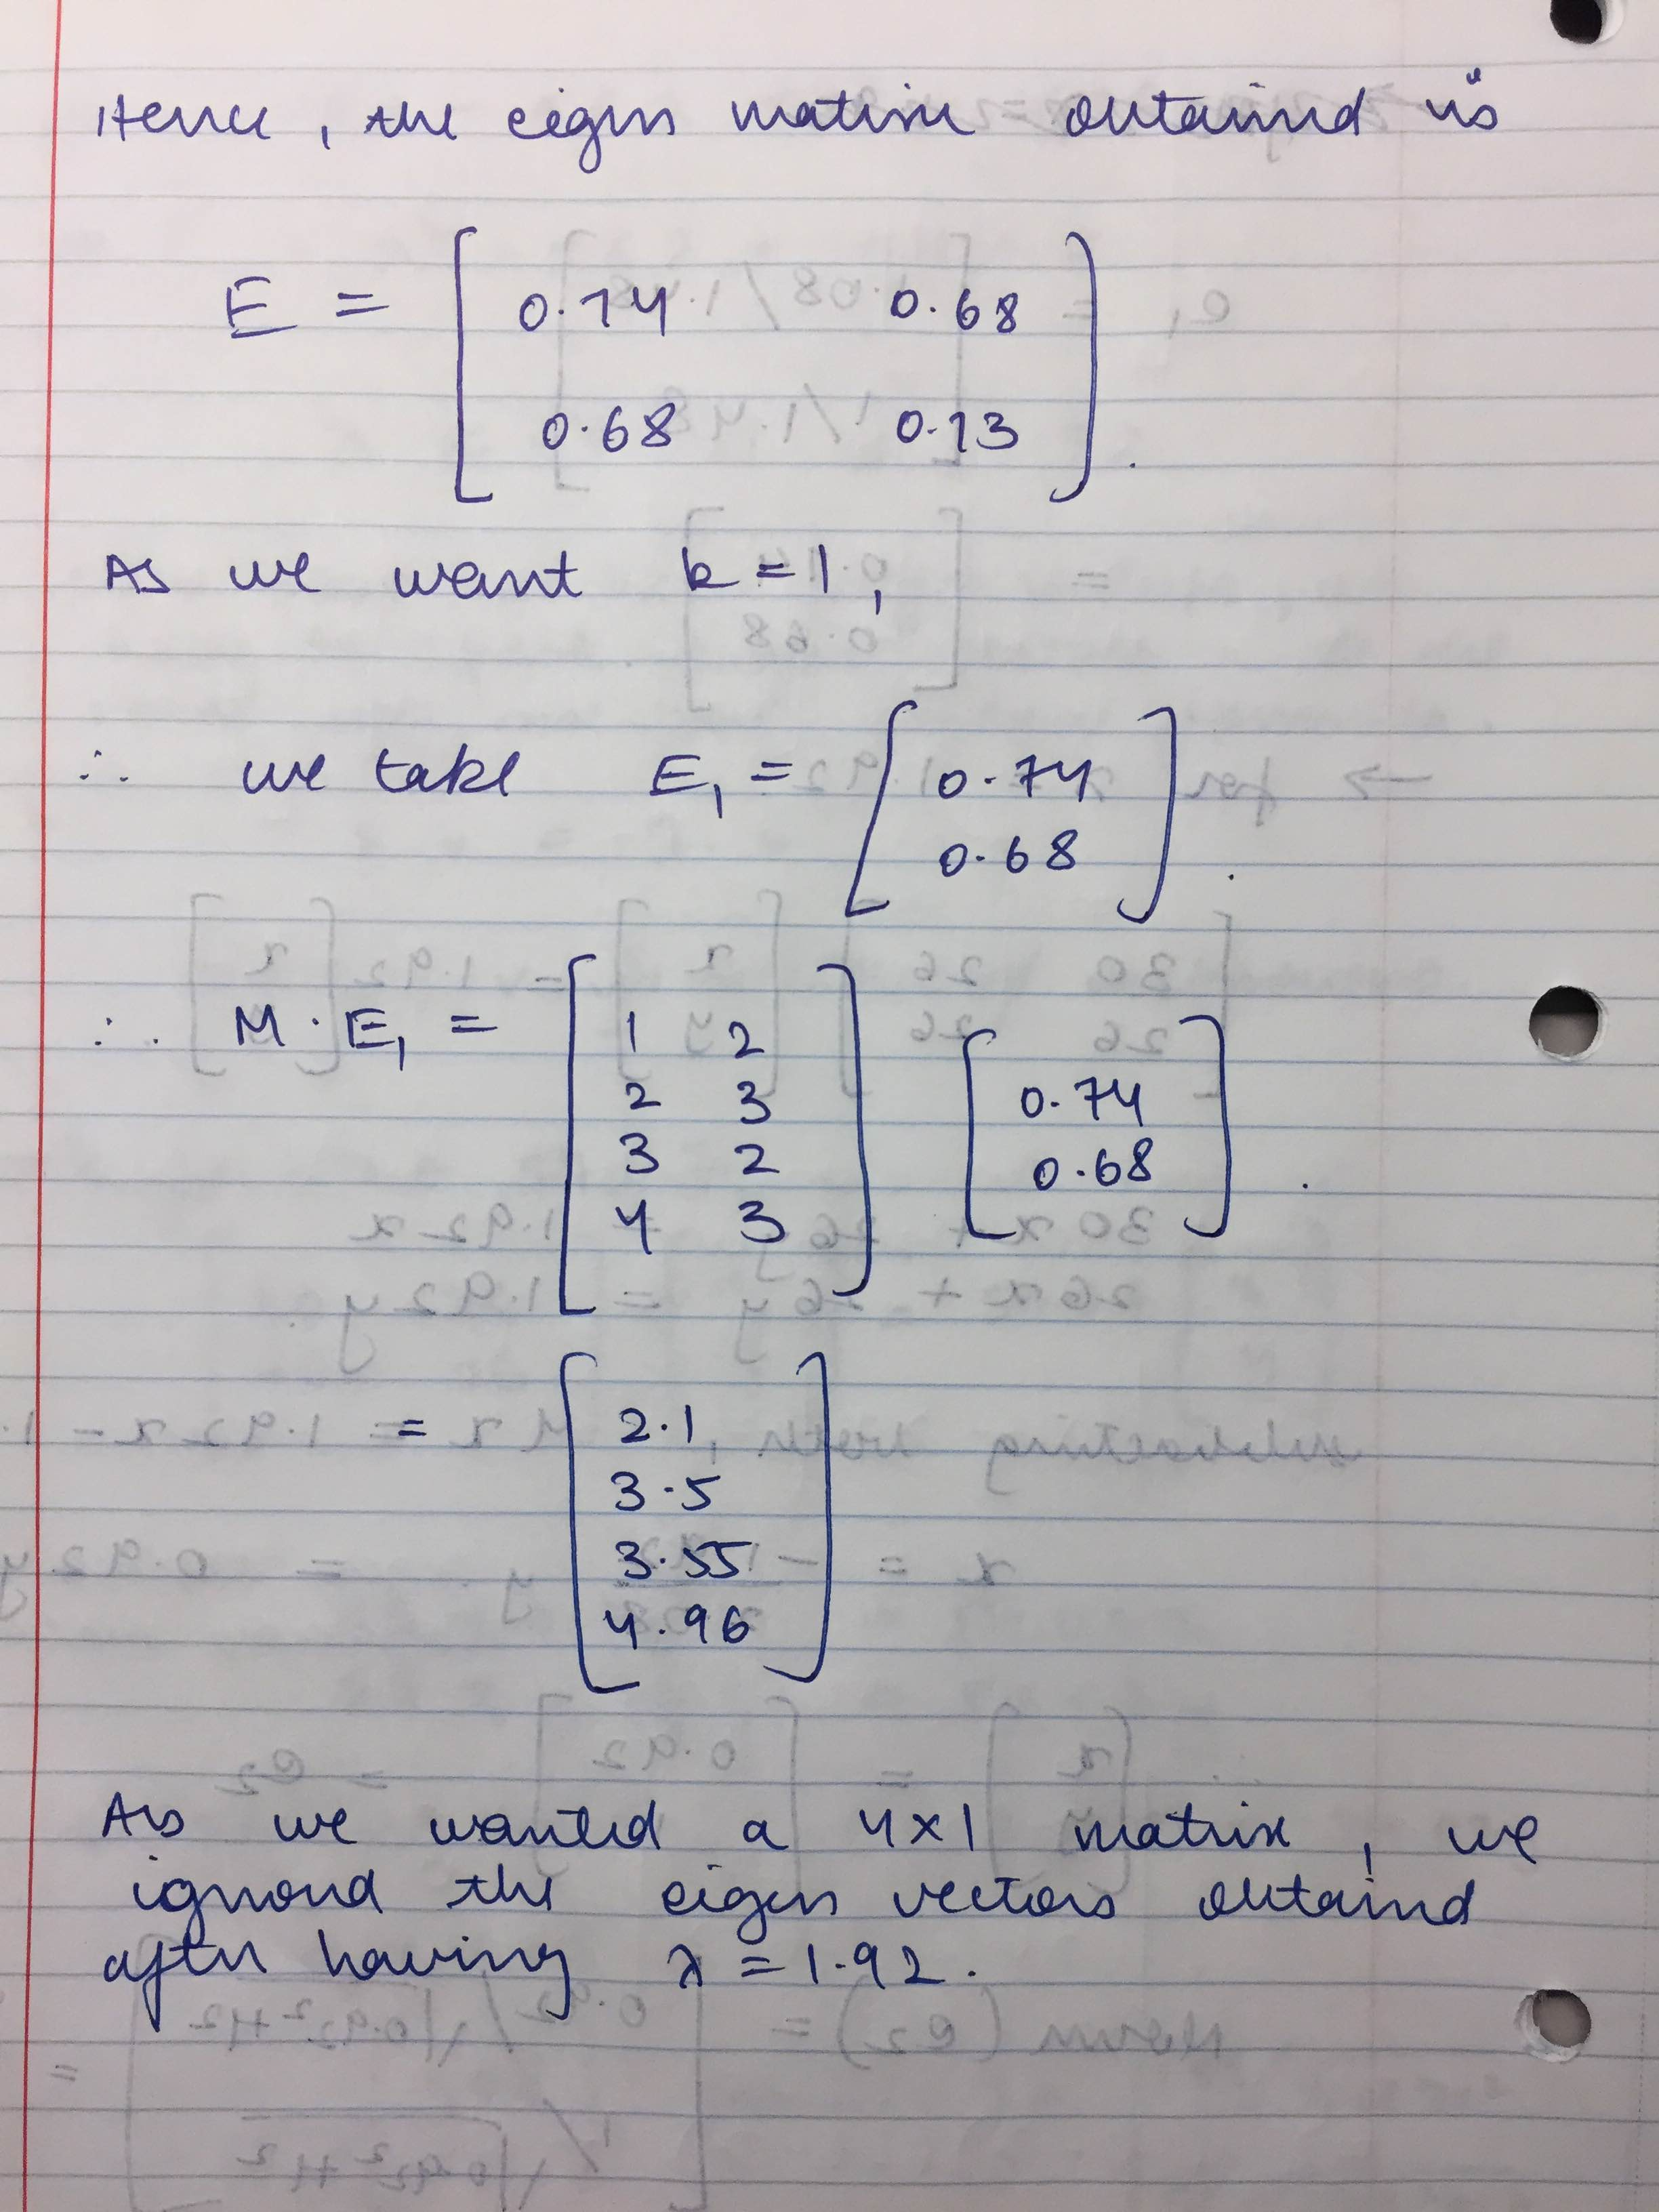 Hence, the eigen matrix obtained is
E = [ 0.74 0.68
0.68 0.73 ].
As we want k = 1,
∴ we take E₁ = [ 0.74
0.68 ].
∴ M · E₁ = [ 1 2
2 3
3 2
4 3 ] [ 0.74
0.68 ].
= [ 2.1
3.5
3.55
4.96 ]
As we wanted a 4x1 matrix, we
ignord the eigen vectors obtaind
after having λ = 1.92.